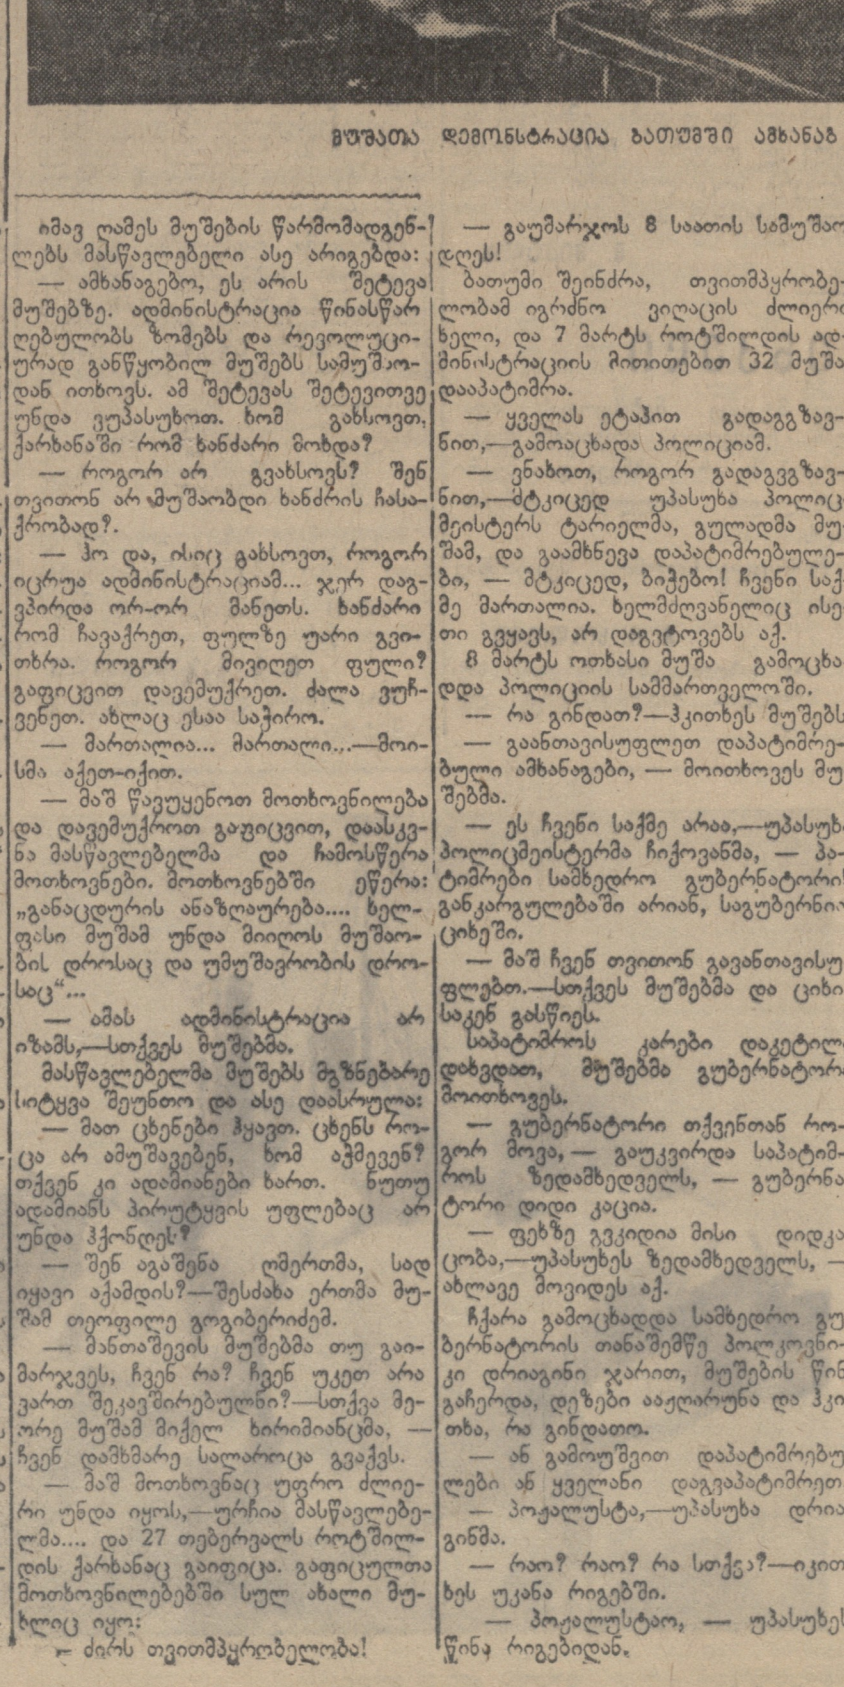 მუშათა დემონსტრაცია ბათუმში ამხანაგ
იმავ ღამეს მუშების წარმომადგენ-
ლებს მასწავლებელი ასე არიგებდა:
— ამხანაგებო, ეს არის შეტევა
მუშებზე. ადმინისტრაცია წინასწარ
ღებულობს ზომებს და რევოლუცი-
ურად განწყობილ მუშებს სამუშაო-
დან ითხოვს. ამ შეტევას შეტევითვე
უნდა ვუპასუხოთ. ხომ გახსოვთ,
ქარხანაში რომ ხანძარი მოხდა?
— როგორ არ გვახსოვს? შენ
თვითონ არ მუშაობდი ხანძრის ჩასა-
ქრობად?.
— ჰო და, ისიც გახსოვთ, როგორ
იცრუა ადმინისტრაციამ... ჯერ დაგ-
ვპირდა ორ-ორ მანეთს. ხანძარი
რომ ჩავაქრეთ, ფულზე უარი გვი-
თხრა. როგორ მივიღეთ ფული?
გაფიცვით დავემუქრეთ. ძალა ვუჩ-
ვენეთ. ახლაც ესაა საჭირო.
— მართალია... მართალი...—მოი-
სმა აქეთ-იქით.
— მაშ წავუყენოთ მოთხოვნილება
და დავემუქროთ გაფიცვით, დაასკვ-
ნა მასწავლებელმა და ჩამოსწერა
მოთხოვნები. მოთხოვნებში ეწერა:
„განაცდურის ანაზღაურება.... ხელ-
ფასი მუშამ უნდა მიიღოს მუშაო-
ბის დროსაც და უმუშავრობის დრო-
საც“...
— ამას ადმინისტრაცია არ
იზამს,—სთქვეს მუშებმა.
მასწავლებელმა მუშებს მგზნებარე
სიტყვა შეუნთო და ასე დაასრულა:
— მათ ცხენები ჰყავთ. ცხენს რო-
ცა არ ამუშავებენ, ხომ აჭმევენ?
თქვენ კი ადამიანები ხართ. ნუთუ
ადამიანს პირუტყვის უფლებაც არ
უნდა ჰქონდეს?
— შენ აგაშენა ღმერთმა, სად
იყავი აქამდის?—შესძახა ერთმა მუ-
შამ თეოფილე გოგიბერიძემ.
— მანთაშევის მუშებმა თუ გაი-
მარჯვეს, ჩვენ რა? ჩვენ უკეთ არა
ვართ შეკავშირებულნი?—სთქვა მე-
ორე მუშამ მიქელ ხირიმიანცმა, —
ჩვენ დამხმარე სალაროცა გვაქვს.
— მაშ მოთხოვნაც უფრო ძლიე-
რი უნდა იყოს,—ურჩია მასწავლებე-
ლმა.... და 27 თებერვალს როტშილ-
დის ქარხანაც გაიფიცა. გაფიცულთა
მოთხოვნილებებში სულ ახალი მუ-
ხლიც იყო:
— ძირს თვითმპყრობელობა!
— გაუმარჯოს 8 საათის სამუშაო
დღეს!
ბათუმი შეინძრა, თვითმპყრობე-
ლობამ იგრძნო ვიღაცის ძლიერი
ხელი, და 7 მარტს როტშილდის ად-
მინისტრაციის მითითებით 32 მუშა
დააპატიმრა.
— ყველას ეტაპით გადაგგზავ-
ნით,—გამოაცხადა პოლიციამ.
— ვნახოთ, როგორ გადაგვგზავ-
ნით,—მტკიცედ უპასუხა პოლიც-
მეისტერს ტარიელმა, გულადმა მუ-
შამ, და გაამხნევა დაპატიმრებულე-
ბი, — მტკიცედ, ბიჭებო! ჩვენი საქ-
მე მართალია. ხელმძღვანელიც ისე-
თი გვყავს, არ დაგვტოვებს აქ.
8 მარტს ოთხასი მუშა გამოცხა-
დდა პოლიციის სამმართველოში.
— რა გინდათ?—ჰკითხეს მუშებს
— გაანთავისუფლეთ დაპატიმრე-
ბული ამხანაგები, — მოითხოვეს მუ
შებმა.
— ეს ჩვენი საქმე არაა,—უპასუხა
პოლიცმეისტერმა ჩიქოვანმა, — პა-
ტიმრები სამხედრო გუბერნატორის
განკარგულებაში არიან, საგუბერნიო
ციხეში.
— მაშ ჩვენ თვითონ გავანთავისუ
ფლებთ.—სთქვეს მუშებმა და ციხი
საკენ გასწიეს.
საპატიმროს კარები დაკეტილ
დახვდათ, მუშებმა გუბერნატორი
მოითხოვეს.
— გუბერნატორი თქვენთან რო-
გორ მოვა, — გაუკვირდა საპატიმ-
როს ზედამხედველს, — გუბერნა
ტორი დიდი კაცია.
— ფეხზე გვკიდია მისი დიდკა
ცობა,—უპასუხეს ზედამხედველს, —
ახლავე მოვიდეს აქ.
ჩქარა გამოცხადდა სამხედრო გუ
ბერნატორის თანაშემწე პოლკოვნი-
კი დრიაგინი ჯარით, მუშების წინ
გაჩერდა, დეზები ააჟღარუნა და ჰკი
თხა, რა გინდათო.
— ან გამოუშვით დაპატიმრებუ
ლები ან ყველანი დაგვაპატიმრეთ
— პოჟალუსტა,—უპასუხა დრია
გინმა.
— რაო? რაო? რა სთქვა?—იკით
ხეს უკანა რიგებში.
— პოჟალუსტაო, — უპასუხეს
წინა რიგებიდან.